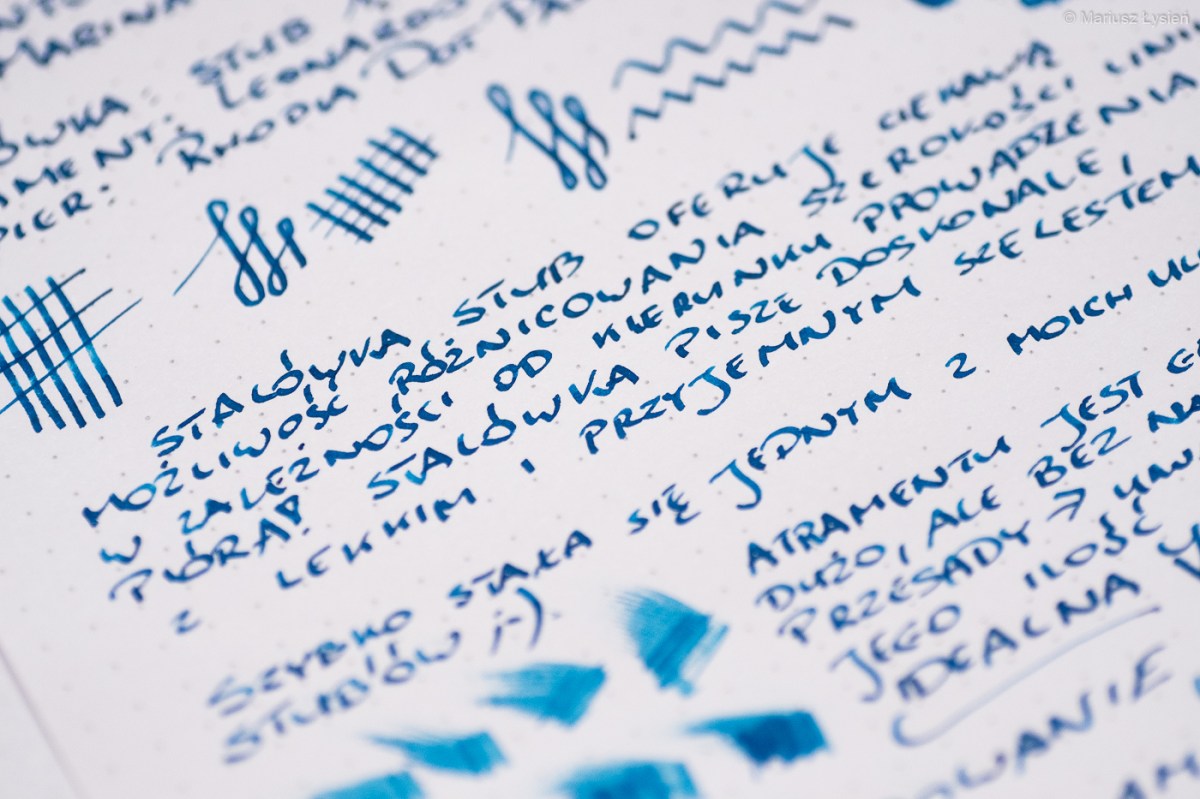 © Mariusz Łysień
MARINA
STUB
LEONARDO
RHODIA DOT
STALÓWKA STUB OFERUJE CIEKAWĄ
MOŻLIWOŚĆ RÓŻNICOWANIA SZEROKOŚCI LINII
W ZALEŻNOŚCI OD KIERUNKU PROWADZENIA
PIÓRA! STALÓWKA PISZE DOSKONALE I
Z LEKKIM I PRZYJEMNYM SZELESTEM
SZYBKO STAŁA SIĘ JEDNYM Z MOICH
STUB'ÓW ;-)
ATRAMENTU JEST
DUŻO, ALE BEZ
PRZESADY →
JEGO ILOŚĆ
IDEALNA